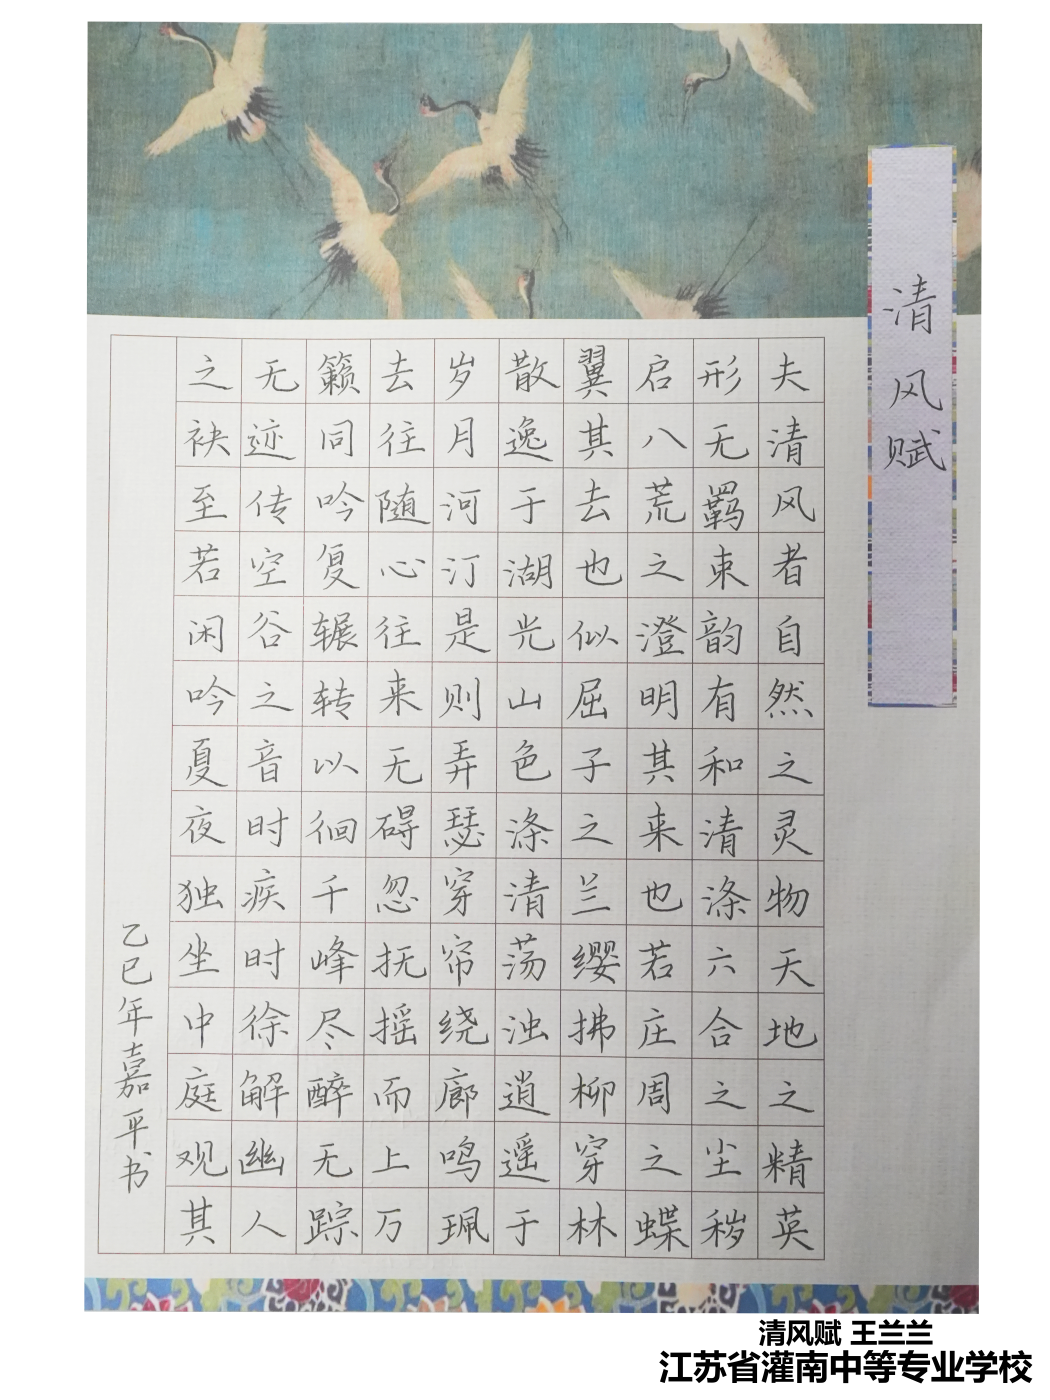 清风赋
夫清风者自然之灵物天地之精英
形无羁束韵有和清涤六合之尘秽
启八荒之澄明其来也若庄周之蝶
翼其去也似屈子之兰缨拂柳穿林
散逸于湖光山色涤清荡浊逍遥于
岁月河汀是则弄瑟穿帘绕廊鸣珮
去往随心往来无碍忽抚摇而上万
籁同吟复辗转以徊千峰尽醉无踪
无迹传空谷之音时疾时徐解幽人
之袂至若闲吟夏夜独坐中庭观其
乙巳年嘉平书
清风赋 王兰兰
江苏省灌南中等专业学校